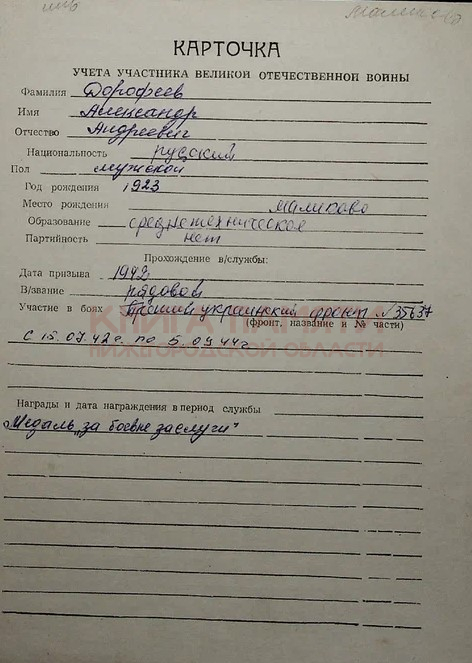 Маликово
КАРТОЧКА
УЧЕТА УЧАСТНИКА ВЕЛИКОЙ ОТЕЧЕСТВЕННОЙ ВОЙНЫ
Фамилия Дорофеев
Имя Александр
Отчество Андреевич
Национальность русский
Пол мужской
Год рождения 1923
Место рождения Маликово
Образование среднетехническое
Партийность нет
Прохождение в/службы:
Дата призыва 1942
В/звание рядовой
Участие в боях украинский фронт № 35637
(фронт, название и № части)
КНИГА ПАМЯТИ
НИЖЕГОРОДСКОЙ ОБЛАСТИ
с 15.07.42г. по 5.09.44г
Награды и дата награждения в период службы
Медаль „за боевые заслуги"